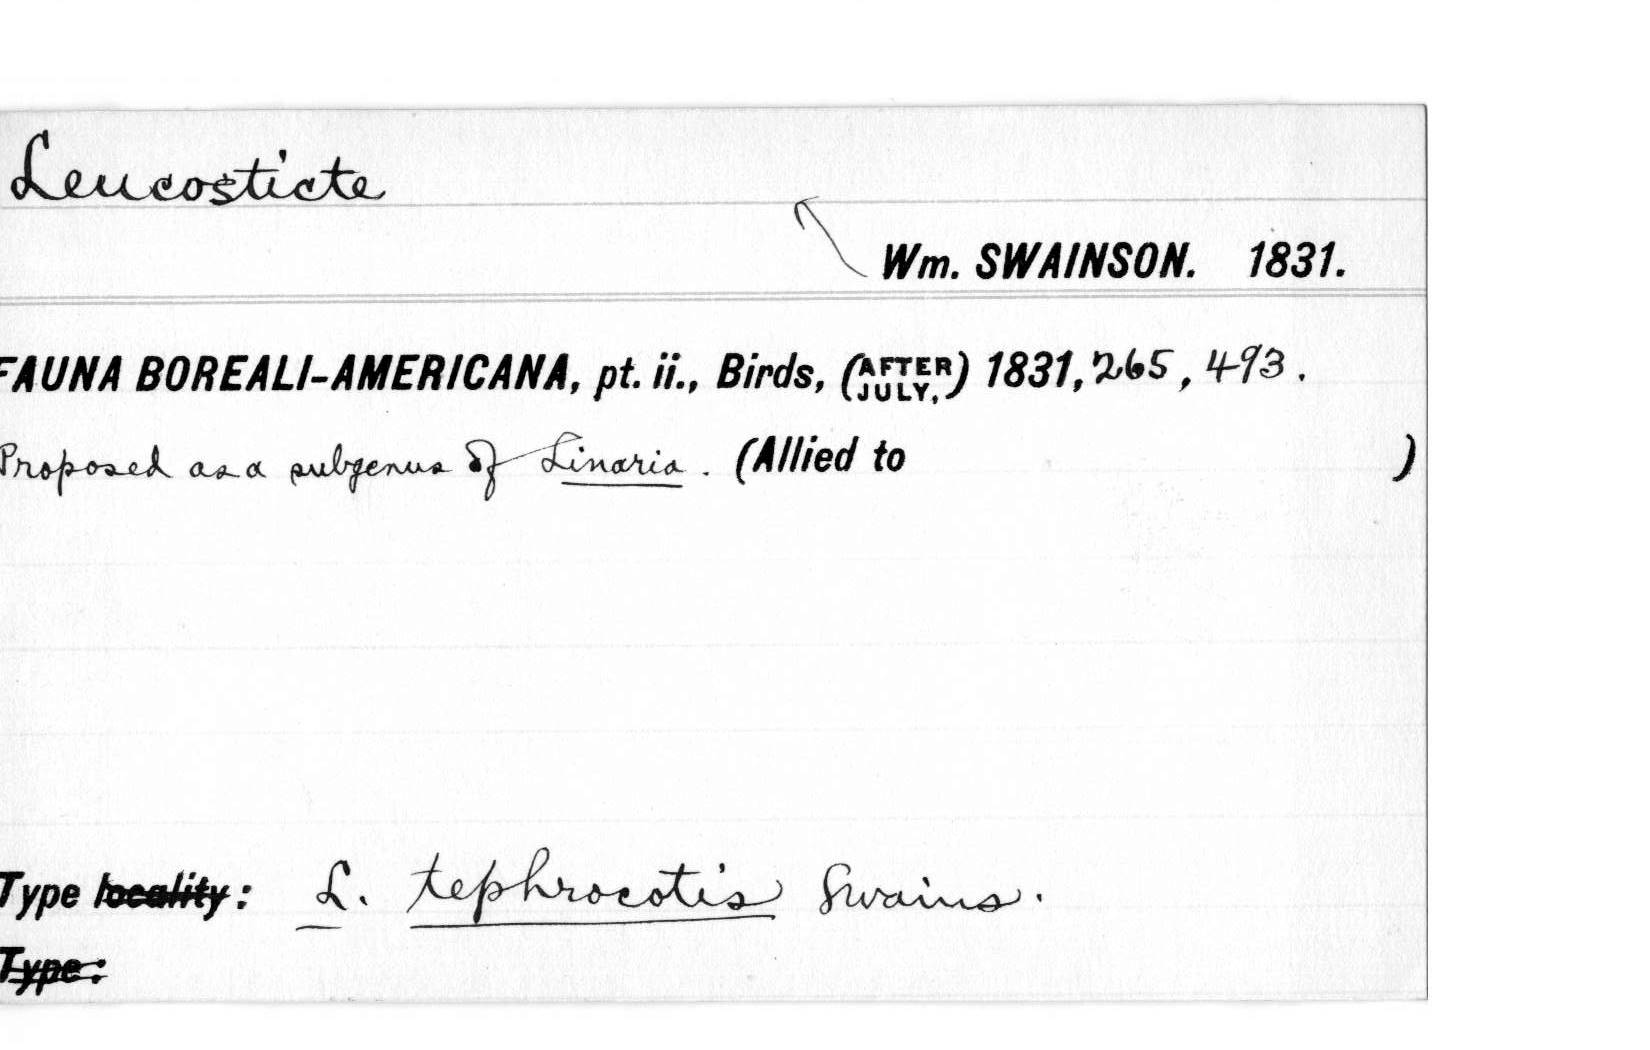 Leucosticte
Wm. SWAINSON. 1831.
FAUNA BOREALI-AMERICANA, pt. ii., Birds, (AFTER JULY,) 1831, 265, 493.
Proposed as a subgenus of Linaria. (Allied to )
Type locality: L. tephrocotis Swains.
Type: